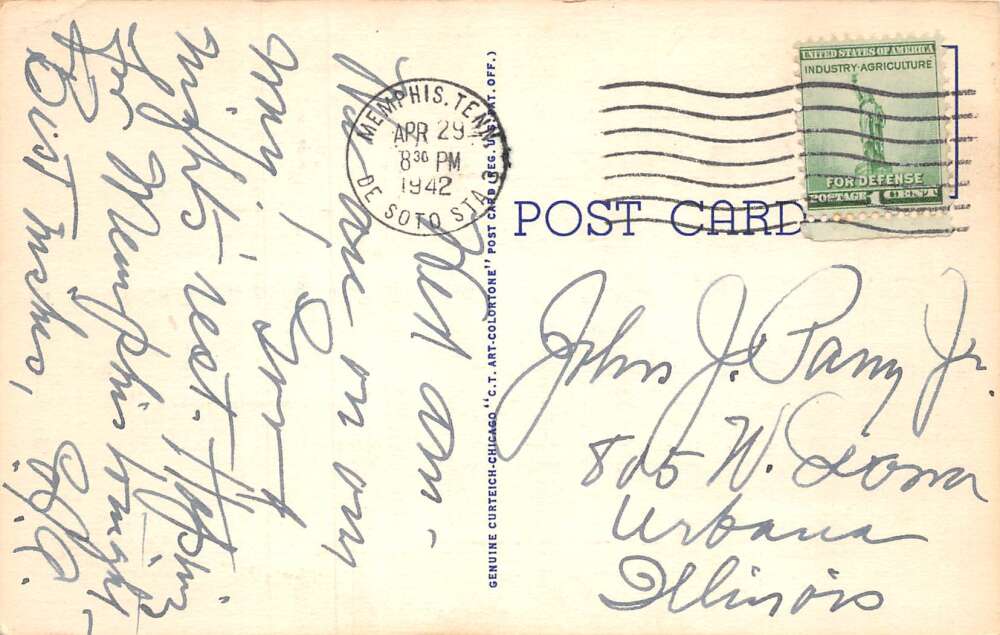 UNITED STATES OF AMERICA
INDUSTRY-AGRICULTURE
FOR DEFENSE
POSTAGE 1 CENT
MEMPHIS, TENN.
APR 29
8 30 PM
1942
DE SOTO STA.
POST CARD
GENUINE CURTEICH-CHICAGO "C.T. ART-COLORTONE" POST CARD (REG. U.S. PAT. OFF.)
John J. Parry Jr.
805 W. Iowa
Urbana
Illinois
Wed am.
Have on my
way
night's rest. Hopping
for Memphis tonight-
Best wishes,